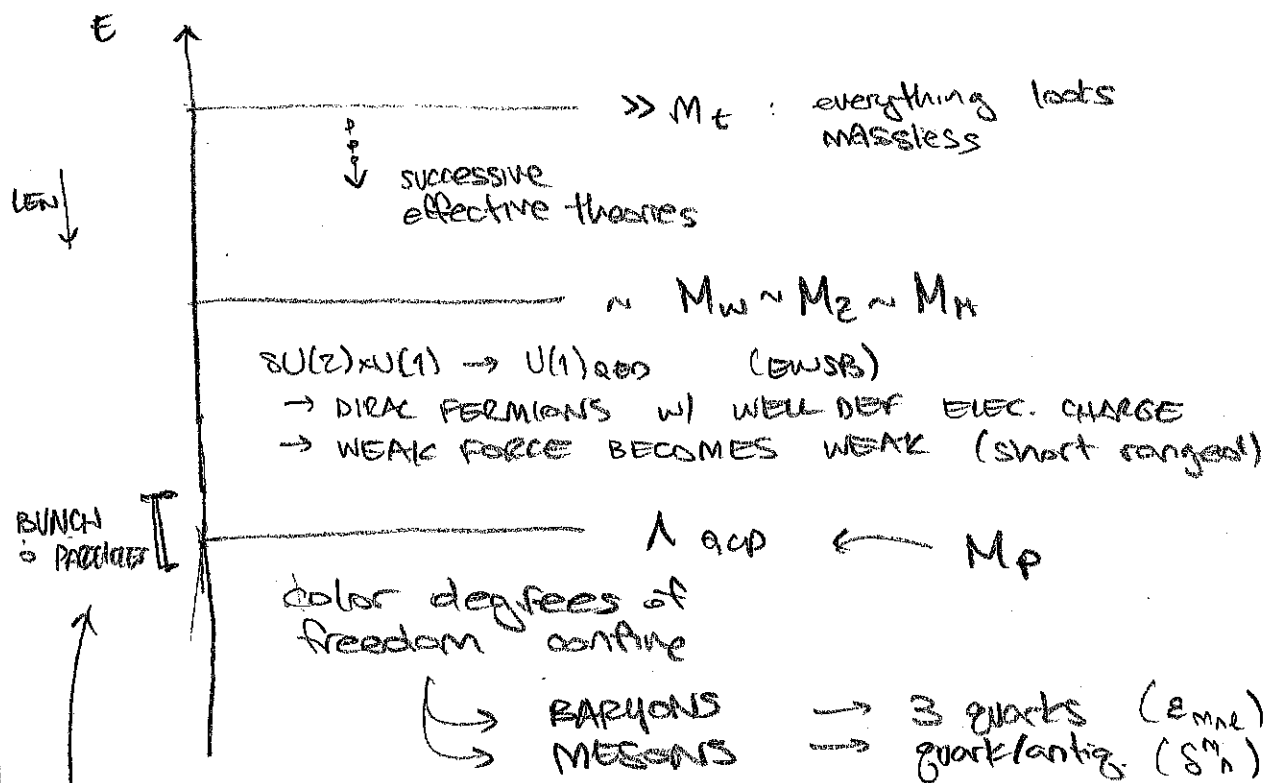 E
>> Mt : everything looks
massless
LEN
successive
effective theories
~ MW ~ MZ ~ MH
SU(2)×U(1) → U(1)QED (EWSB)
→ DIRAC FERMIONS W/ WELL DEF ELEC. CHARGE
→ WEAK FORCE BECOMES WEAK (short ranged!)
BUNCH
O PARTICLES
Λ QCD ← Mp
color degrees of
freedom confine
→ BARYONS → 3 quarks (εmnl)
→ MESONS → quark/antiq. (δᵐn)